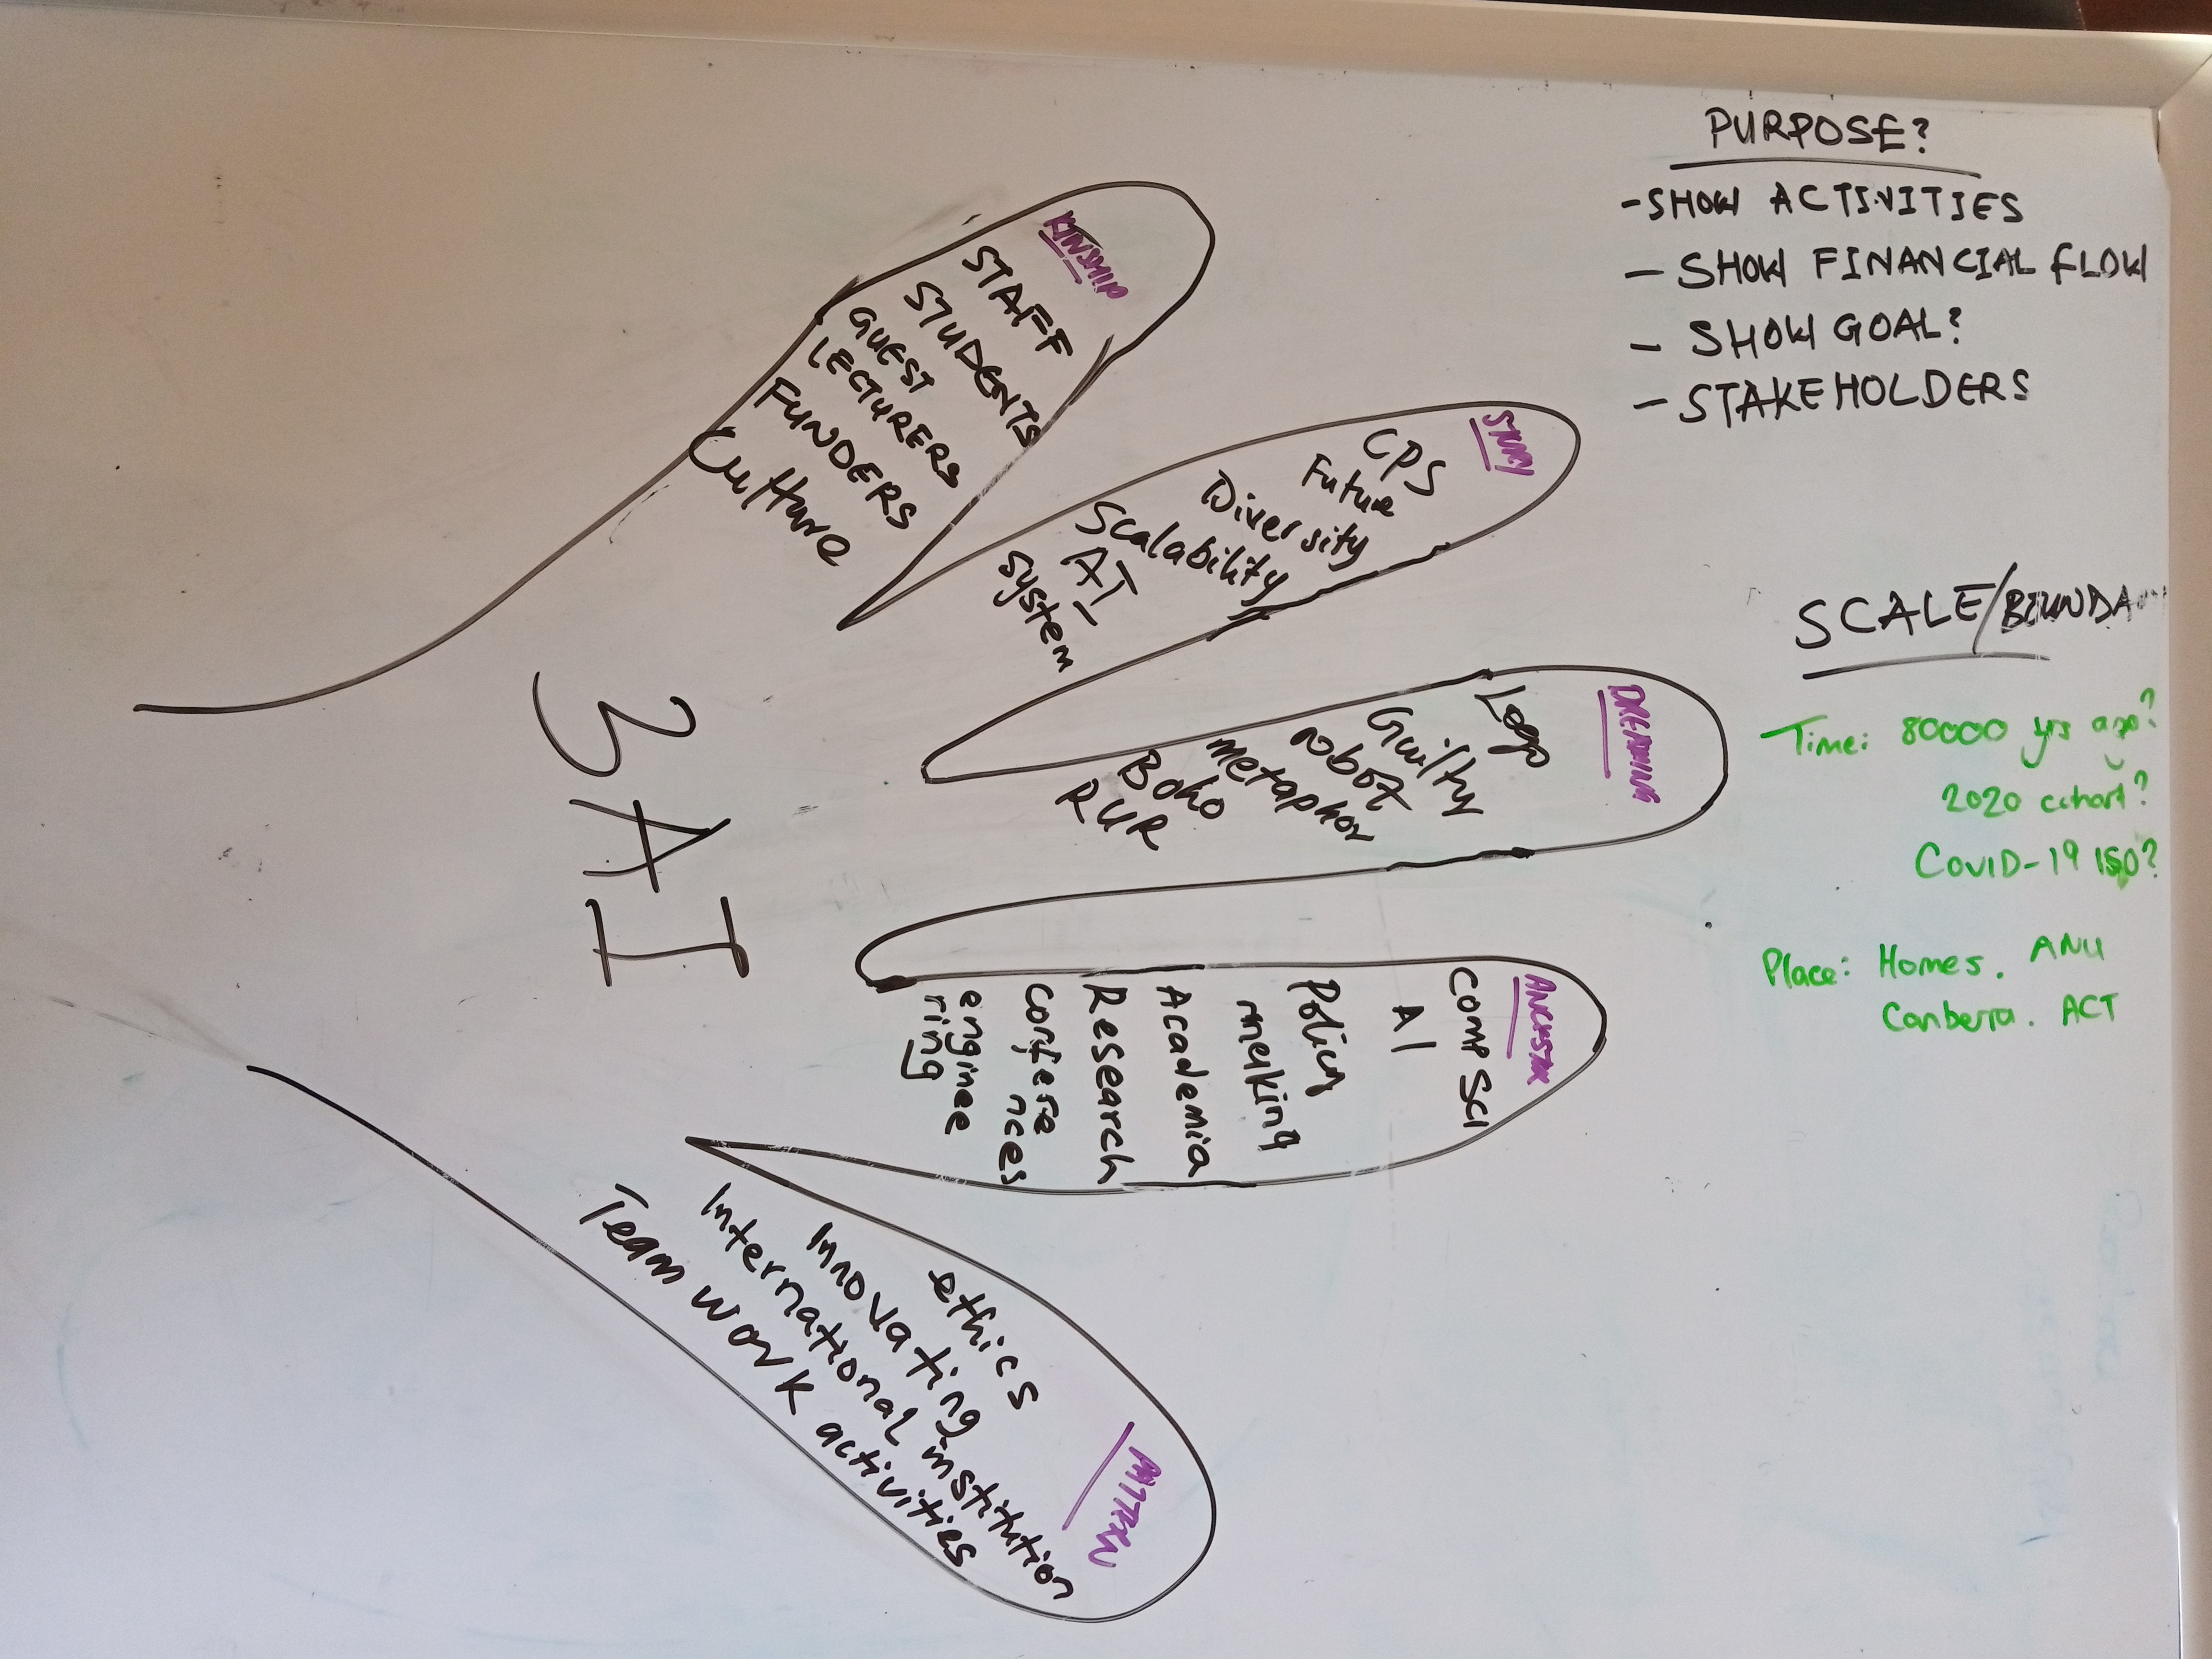 PURPOSE?
-SHOW ACTIVITIES
- SHOW FINANCIAL FLOW
- SHOW GOAL?
- STAKEHOLDERS
SCALE/BOUNDA
Time: 80000 yrs ago?
2020 cohort?
COVID-19 ISO?
Place: Homes. ANU
Canberra. ACT
3AI
KINSHIP
STAFF
STUDENTS
GUEST
LECTURERS
FUNDERS
Culture
STORY
CPS
Future
Diversity
Scalability
AI
System
DREAMING
Lego
Guilty
robot
metaphor
Boho
RUR
COMP SCI
AI
Policy
making
Academia
Research
Confere
nces
enginee
ring
ethics
Innovating
International institution
Team work activities